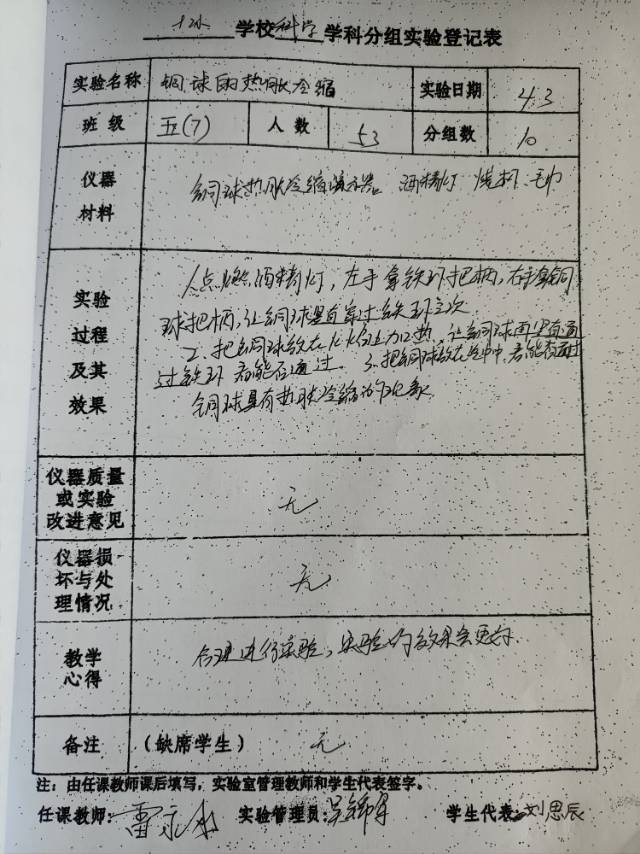 学校科学学科分组实验登记表
实验名称 铜球的热胀冷缩 实验日期 4.3
班级 五(7) 人数 53 分组数 10
仪器材料 铜球热胀冷缩演示器 酒精灯 烧杯 毛巾
实验过程及其效果
1.点燃酒精灯,左手拿铁环把柄,右手拿铜
球把柄,让铜球是否穿过铁环
2.把铜球放在火焰上加热,让铜球再
过铁环看能否通过. 3.把铜球放在 中,看能否通过
铜球具有热胀冷缩的现象
仪器质量或实验改进意见 无
仪器损坏与处理情况 无
教学心得 合理进行实验,实验的效果会更好
备注 (缺席学生) 无
注:由任课教师课后填写,实验室管理教师和学生代表签字。
任课教师: 雷 实验管理员: 吴 学生代表: 刘思辰